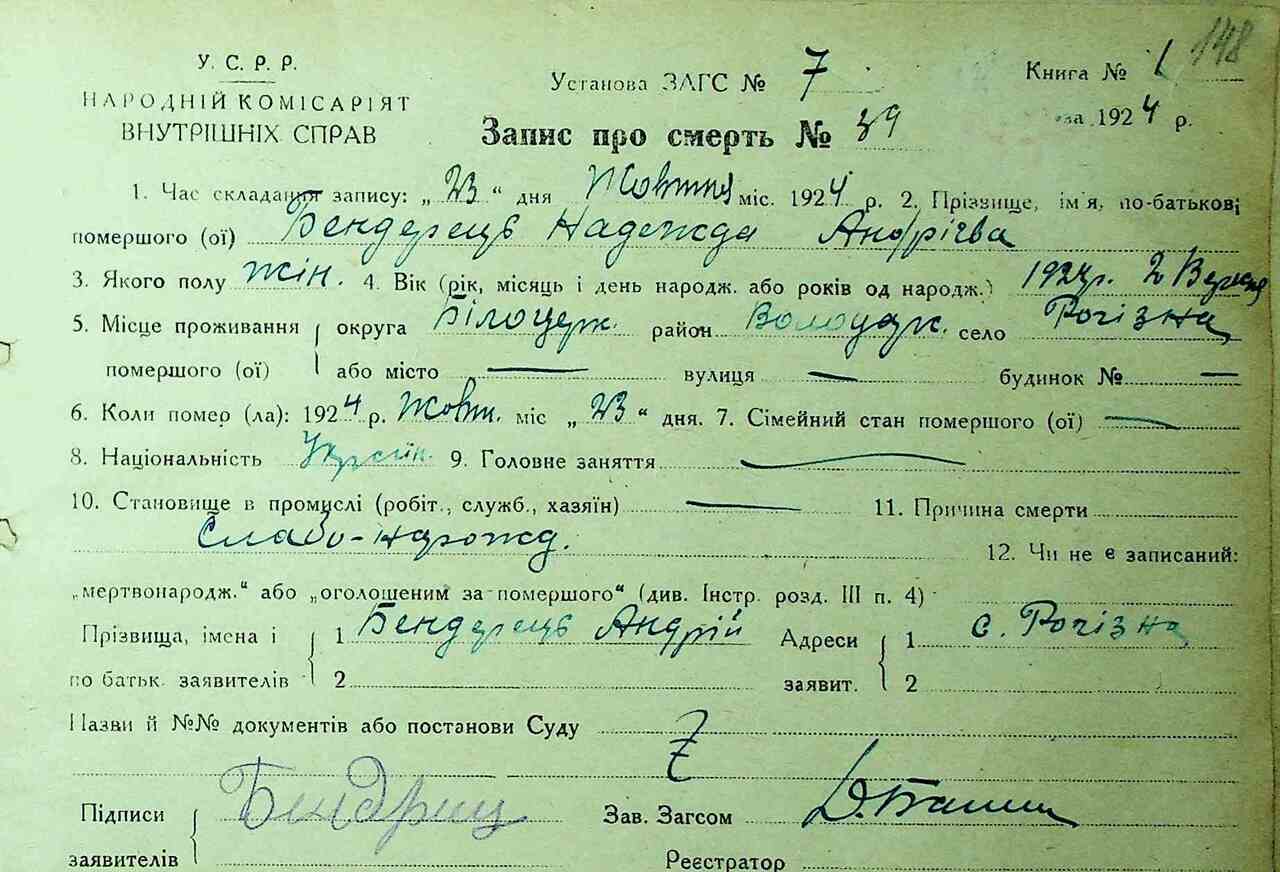 148
У. С. Р. Р.
НАРОДНІЙ КОМІСАРІЯТ
ВНУТРІШНІХ СПРАВ
Установа ЗАГС № 7
Книга № 1
за 1924 р.
Запис про смерть № 39
1. Час складання запису: „ 23 “ дня Жовтня міс. 1924 р. 2. Прізвище, ім'я, по-батькові
помершого (ої) Бендерець Надежда Андрієва
3. Якого полу жін. 4. Вік (рік, місяць і день народж. або років од народж.) 1924р. 2 Вересня
5. Місце проживання округа Білоцерк. район Володарк. село Рогізна
помершого (ої) або місто — вулиця — будинок № —
6. Коли помер (ла): 1924 р. Жовт. міс „ 23 “ дня. 7. Сімейний стан помершого (ої) —
8. Національність Україн. 9. Головне заняття —
10. Становище в промислі (робіт., служб., хазяїн) — 11. Причина смерти
Слабо-нарожд. 12. Чи не є записаний:
„мертвонародж.“ або „оголошеним за помершого“ (див. Інстр. розд. III п. 4)
Прізвища, імена і 1 Бендерець Андрій Адреси 1 с. Рогізна
по батьк. заявителів 2 заявит. 2
Назви й №№ документів або постанови Суду
Підписи Бендриц Зав. Загсом
заявителів Реєстратор